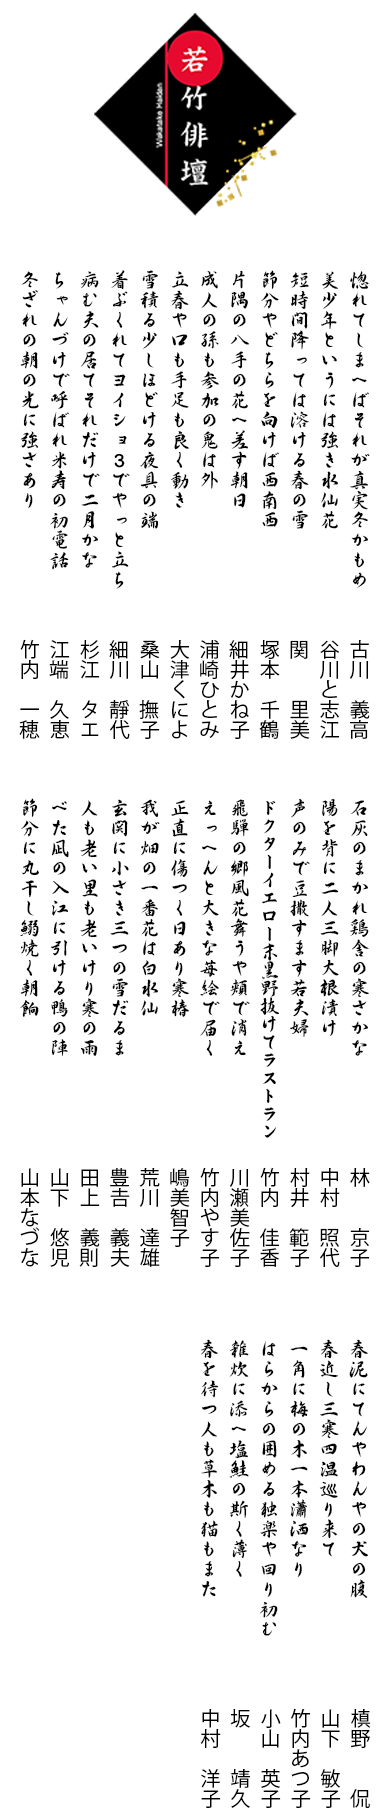 若竹俳壇
Wakatake Haidan
惚れてしまへばそれが真実冬かもめ
古川 義高
美少年というには強き水仙花
谷川と志江
短時間降っては溶ける春の雪
関 里美
節分やどちらを向けば西南西
塚本 千鶴
片隅の八手の花へ差す朝日
細井かね子
成人の孫も参加の鬼は外
浦崎ひとみ
立春や口も手足も良く動き
大津くによ
雪積る少しほどける夜具の端
桑山 撫子
着ぶくれてヨイショ3でやっと立ち
細川 靜代
病む夫の居てそれだけで二月かな
杉江 タエ
ちゃんづけで呼ばれ米寿の初電話
江端 久恵
冬ざれの朝の光に強さあり
竹内 一穂
石灰のまかれ鶏舎の寒さかな
林 京子
陽を背に二人三脚大根漬け
中村 照代
声のみで豆撒すます若夫婦
村井 範子
ドクターイエロー末黒野抜けてラストラン
竹内 佳香
飛騨の郷風花舞うや頬で消え
川瀬美佐子
えっへんと大きな苺絵で届く
竹内やす子
正直に傷つく日あり寒椿
嶋美智子
我が畑の一番花は白水仙
荒川 達雄
玄関に小さき三つの雪だるま
豊吉 義夫
人も老い里も老いけり寒の雨
田上 義則
べた凪の入江に引ける鴨の陣
山下 悠児
節分に丸干し鰯焼く朝餉
山本なづな
春泥にてんやわんやの犬の腹
槙野 侃
春近し三寒四温巡り来て
山下 敏子
一角に梅の木一本瀟洒なり
竹内あつ子
はらからの囲める独楽や回り初む
小山 英子
雑炊に添へ塩鮭の斯く薄く
坂 靖久
春を待つ人も草木も猫もまた
中村 洋子